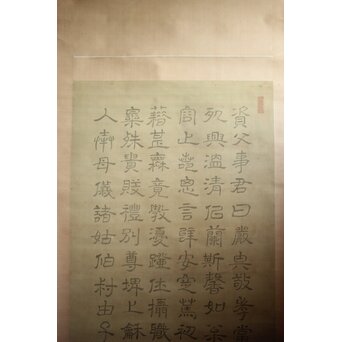 資父事君曰嚴與敬孝當
夙興溫清似蘭斯馨如松
容止若思言辭安定篤初
藉甚無竟學優登仕攝職
樂殊貴賤禮別尊卑上龢
入奉母儀諸姑伯叔由子